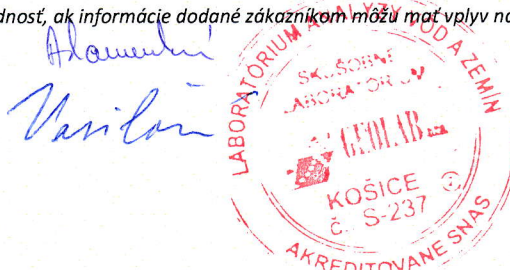 dnosť, ak informácie dodané zákazníkom môžu mať vplyv na
LABORATÓRIUM ANALÝZY VÔD A ZEMÍN
SKÚŠOBNÉ
LABORATÓRIUM
GEOLAB
KOŠICE
č. S-237
AKREDITOVANÉ SNAS